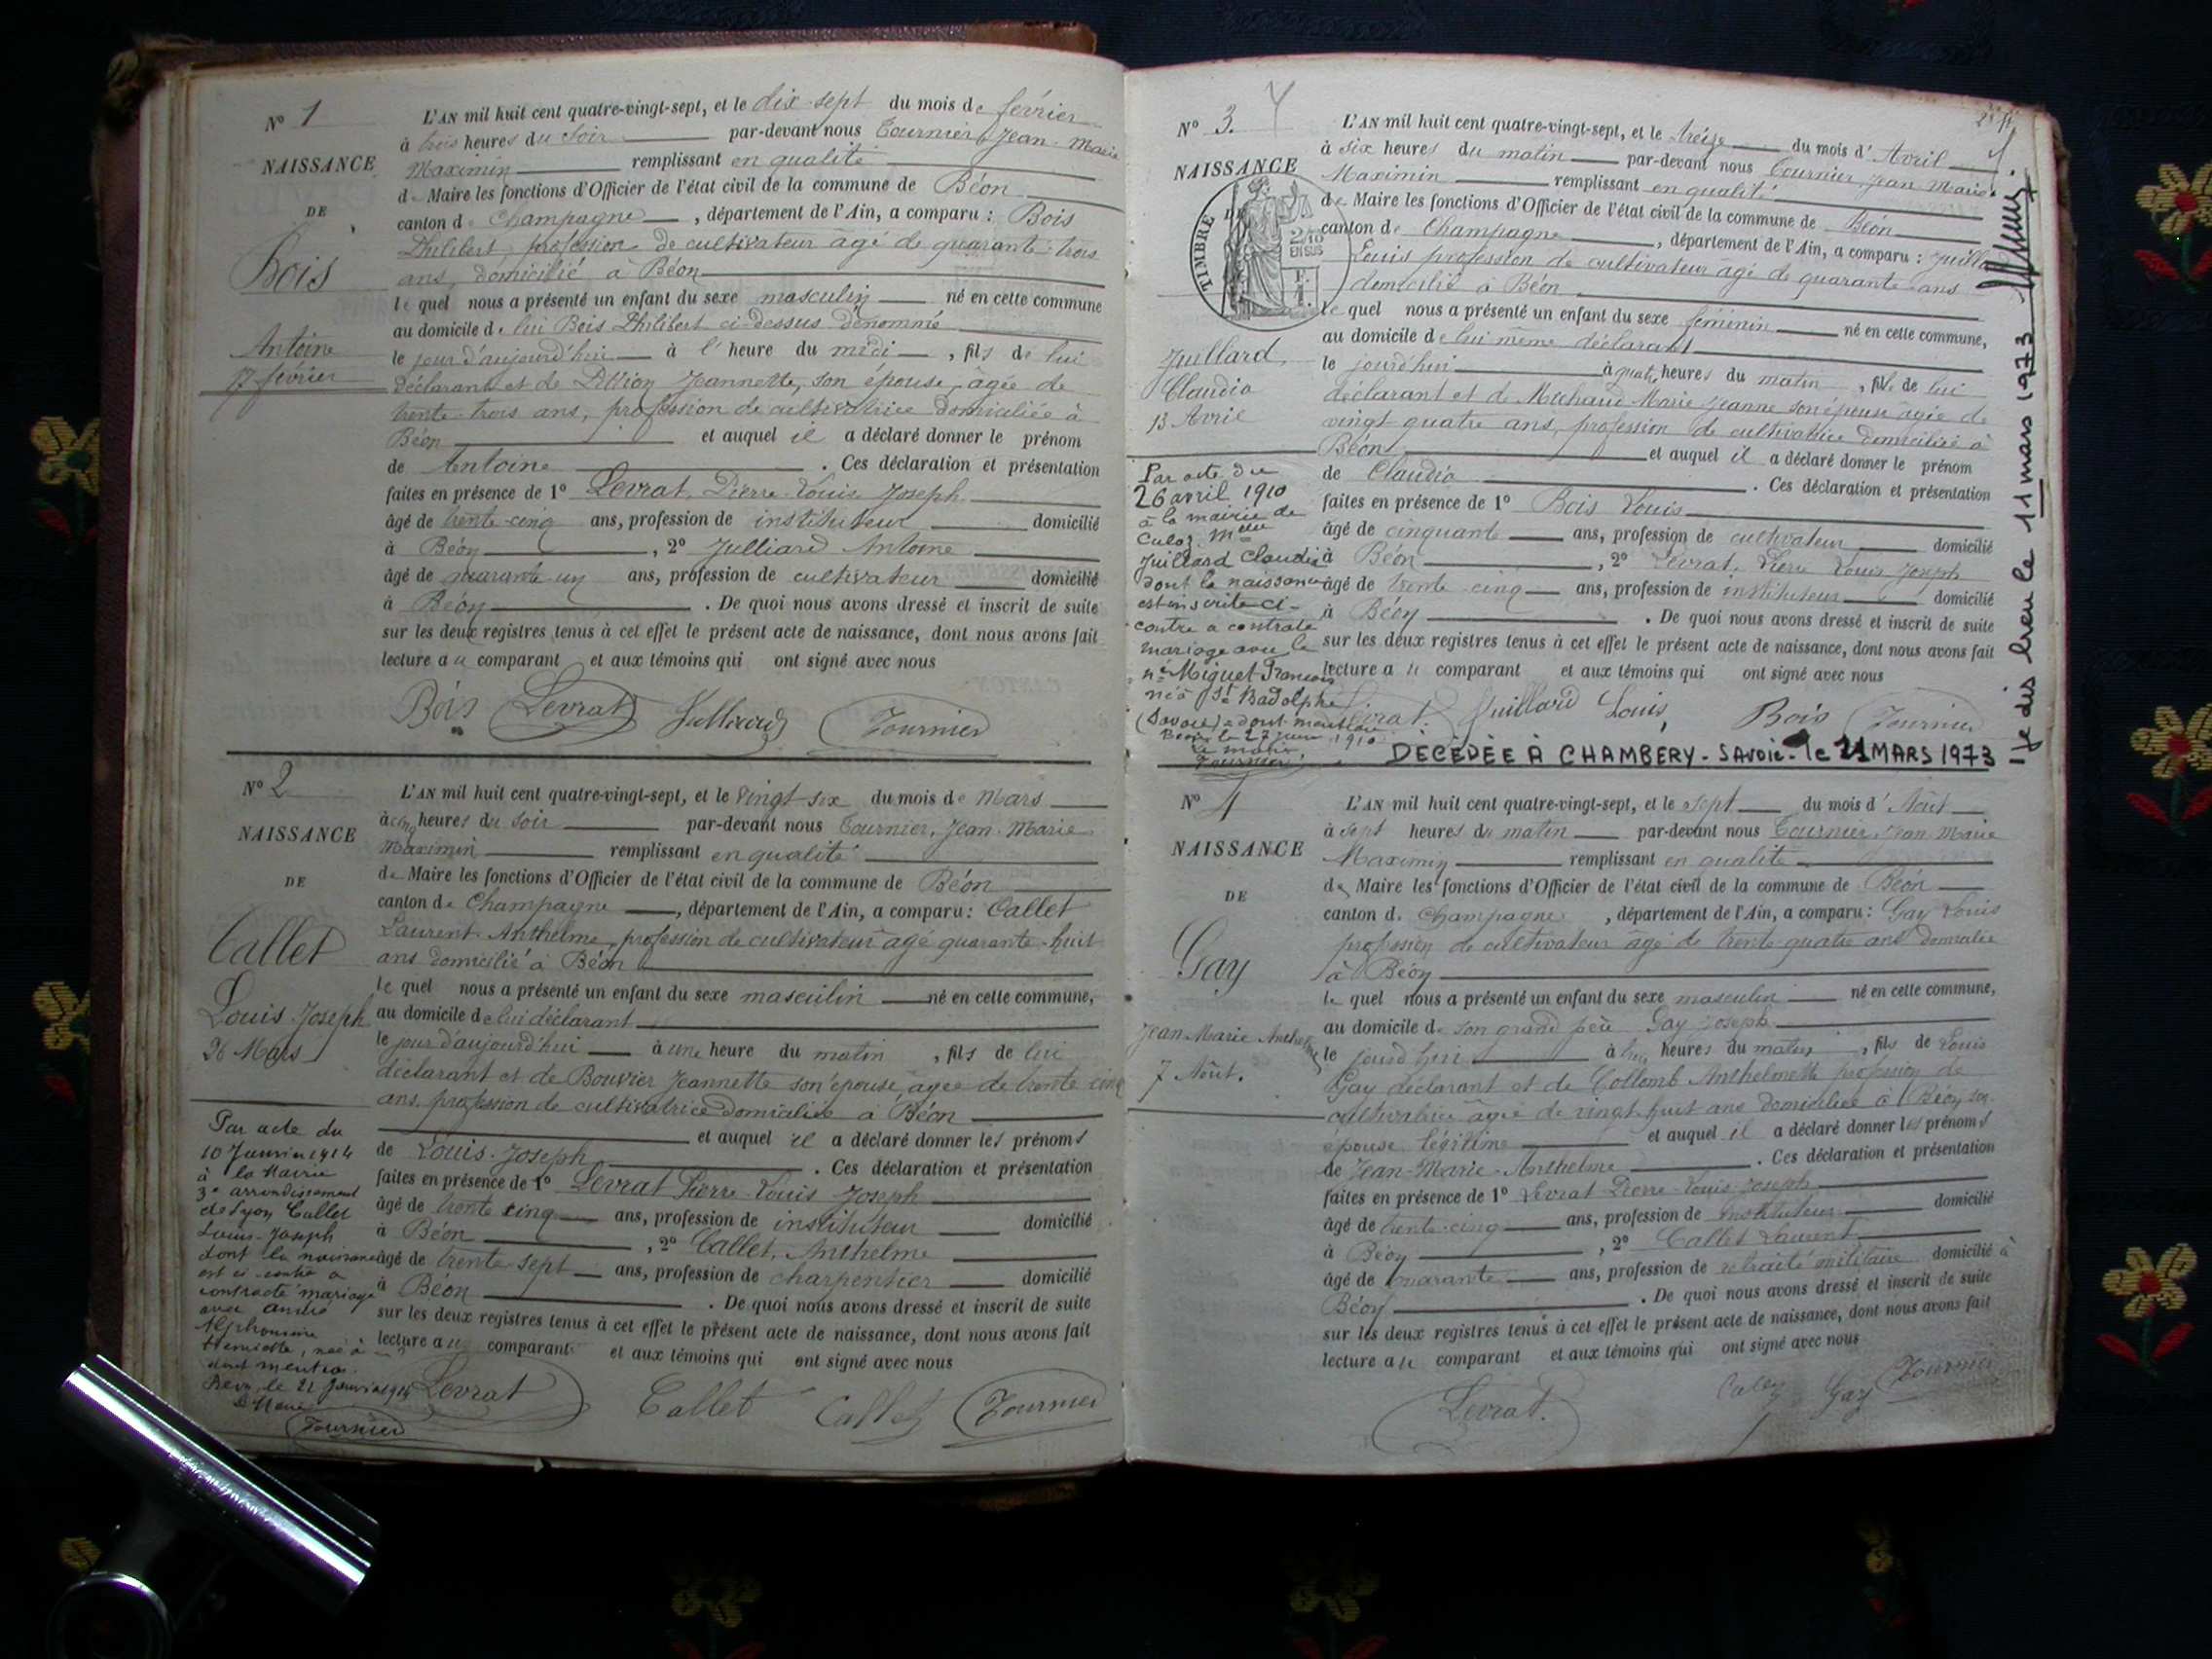 N° 1
NAISSANCE
DE
Bois
Antoine
17 février
L'AN mil huit cent quatre-vingt-sept, et le dix-sept du mois de février
à trois heures du soir par-devant nous Tournier, Jean-Marie
Maximin remplissant en qualité
de Maire les fonctions d'Officier de l'état civil de la commune de Béon
canton de Champagne, département de l'Ain, a comparu : Bois
Philibert, profession de cultivateur âgé de quarante-trois
ans, domicilié à Béon
lequel nous a présenté un enfant du sexe masculin né en cette commune
au domicile de lui Bois Philibert ci-dessus dénommé
le jour d'aujourd'hui à l'heure du midi, fils de lui
déclarant et de Jeannette, son épouse, âgée de
trente-trois ans, profession de cultivatrice domiciliée à
Béon et auquel il a déclaré donner le prénom
de Antoine. Ces déclaration et présentation
faites en présence de 1° Levrat, Pierre-Louis Joseph
âgé de trente-cinq ans, profession de instituteur domicilié
à Béon, 2° Julliard Antoine
âgé de quarante un ans, profession de cultivateur domicilié
à Béon. De quoi nous avons dressé et inscrit de suite
sur les deux registres tenus à cet effet le présent acte de naissance, dont nous avons fait
lecture au comparant et aux témoins qui ont signé avec nous
Bois Levrat Tournier
N° 2
NAISSANCE
DE
Callet
Louis-Joseph
26 Mars
Par acte du
10 Janvier 1914
à la Mairie
3e arrondissement
de Lyon Callet
Louis-Joseph
dont la naissance
est ci-contre a
contracté mariage
avec André
Alphonsine
Henriette, née à
dont mention
Béon, le 21 Janvier 1914
Le Maire
Tournier
L'AN mil huit cent quatre-vingt-sept, et le vingt-six du mois de Mars
à cinq heures du soir par-devant nous Tournier, Jean-Marie
Maximin remplissant en qualité
de Maire les fonctions d'Officier de l'état civil de la commune de Béon
canton de Champagne, département de l'Ain, a comparu : Callet
Laurent-Anthelme, profession de cultivateur âgé quarante-huit
ans domicilié à Béon
lequel nous a présenté un enfant du sexe masculin né en cette commune,
au domicile de lui déclarant
le jour d'aujourd'hui à une heure du matin, fils de lui
déclarant et de Bouvier Jeannette son épouse, âgée de trente cinq
ans, profession de cultivatrice domiciliée à Béon
et auquel il a déclaré donner les prénoms
de Louis-Joseph. Ces déclaration et présentation
faites en présence de 1° Levrat Pierre-Louis Joseph
âgé de trente cinq ans, profession de instituteur domicilié
à Béon, 2° Callet, Anthelme
âgé de trente sept ans, profession de charpentier domicilié
à Béon. De quoi nous avons dressé et inscrit de suite
sur les deux registres tenus à cet effet le présent acte de naissance, dont nous avons fait
lecture au comparant et aux témoins qui ont signé avec nous
Levrat Callet Callet Tournier
N° 3.
NAISSANCE
DE
TIMBRE
2/10
EN SUS
Juillard
Claudia
13 Avril
Par acte du
26 avril 1910
à la mairie de
Culoz, Melle
Juillard Claudia
dont la naissance
est inscrite ci-
contre a contracté
mariage avec le
né Miguet François
né à St Badolphe
(Savoie) dont mention
Béon le 27 juin 1910
Le maire,
Tournier
L'AN mil huit cent quatre-vingt-sept, et le treize du mois d'Avril
à six heures du matin par-devant nous Tournier, Jean Marie
Maximin remplissant en qualité
de Maire les fonctions d'Officier de l'état civil de la commune de Béon
canton de Champagne, département de l'Ain, a comparu : Juillard
Louis profession de cultivateur âgé de quarante ans
domicilié à Béon
lequel nous a présenté un enfant du sexe féminin né en cette commune,
au domicile de lui même déclarant
le jourd'hui à quatre heures du matin, fille de lui
déclarant et de Michaud Marie Jeanne son épouse âgée de
vingt-quatre ans, profession de cultivatrice domiciliée à
Béon et auquel il a déclaré donner le prénom
de Claudia. Ces déclaration et présentation
faites en présence de 1° Bois Louis
âgé de cinquante ans, profession de cultivateur domicilié
à Béon, 2° Levrat, Pierre Louis Joseph
âgé de trente-cinq ans, profession de instituteur domicilié
à Béon. De quoi nous avons dressé et inscrit de suite
sur les deux registres tenus à cet effet le présent acte de naissance, dont nous avons fait
lecture au comparant et aux témoins qui ont signé avec nous
Levrat. Juillard Louis, Bois Tournier
DÉCÉDÉE À CHAMBERY - SAVOIE - le 11 MARS 1973
Je dis bien le 11 mars 1973
N° 4
NAISSANCE
DE
Gay
Jean Marie Anthelme
7 Août.
L'AN mil huit cent quatre-vingt-sept, et le sept du mois d'Août
à sept heures du matin par-devant nous Tournier, Jean Marie
Maximin remplissant en qualité
de Maire les fonctions d'Officier de l'état civil de la commune de Béon
canton de Champagne, département de l'Ain, a comparu : Gay Louis
profession de cultivateur âgé de trente-quatre ans domicilié
à Béon
lequel nous a présenté un enfant du sexe masculin né en cette commune,
au domicile de son grand père Gay Joseph
le jourd'hui à heures du matin, fils de Louis
Gay déclarant et de Collomb Anthelmette profession de
cultivatrice âgée de vingt huit ans domiciliée à Béon son
épouse légitime et auquel il a déclaré donner les prénoms
de Jean-Marie-Anthelme. Ces déclaration et présentation
faites en présence de 1° Levrat Pierre-Louis-Joseph
âgé de trente-cinq ans, profession de instituteur domicilié
à Béon, 2° Callet Laurent
âgé de quarante ans, profession de retraité militaire domicilié à
Béon. De quoi nous avons dressé et inscrit de suite
sur les deux registres tenus à cet effet le présent acte de naissance, dont nous avons fait
lecture au comparant et aux témoins qui ont signé avec nous
Levrat. Gay Tournier